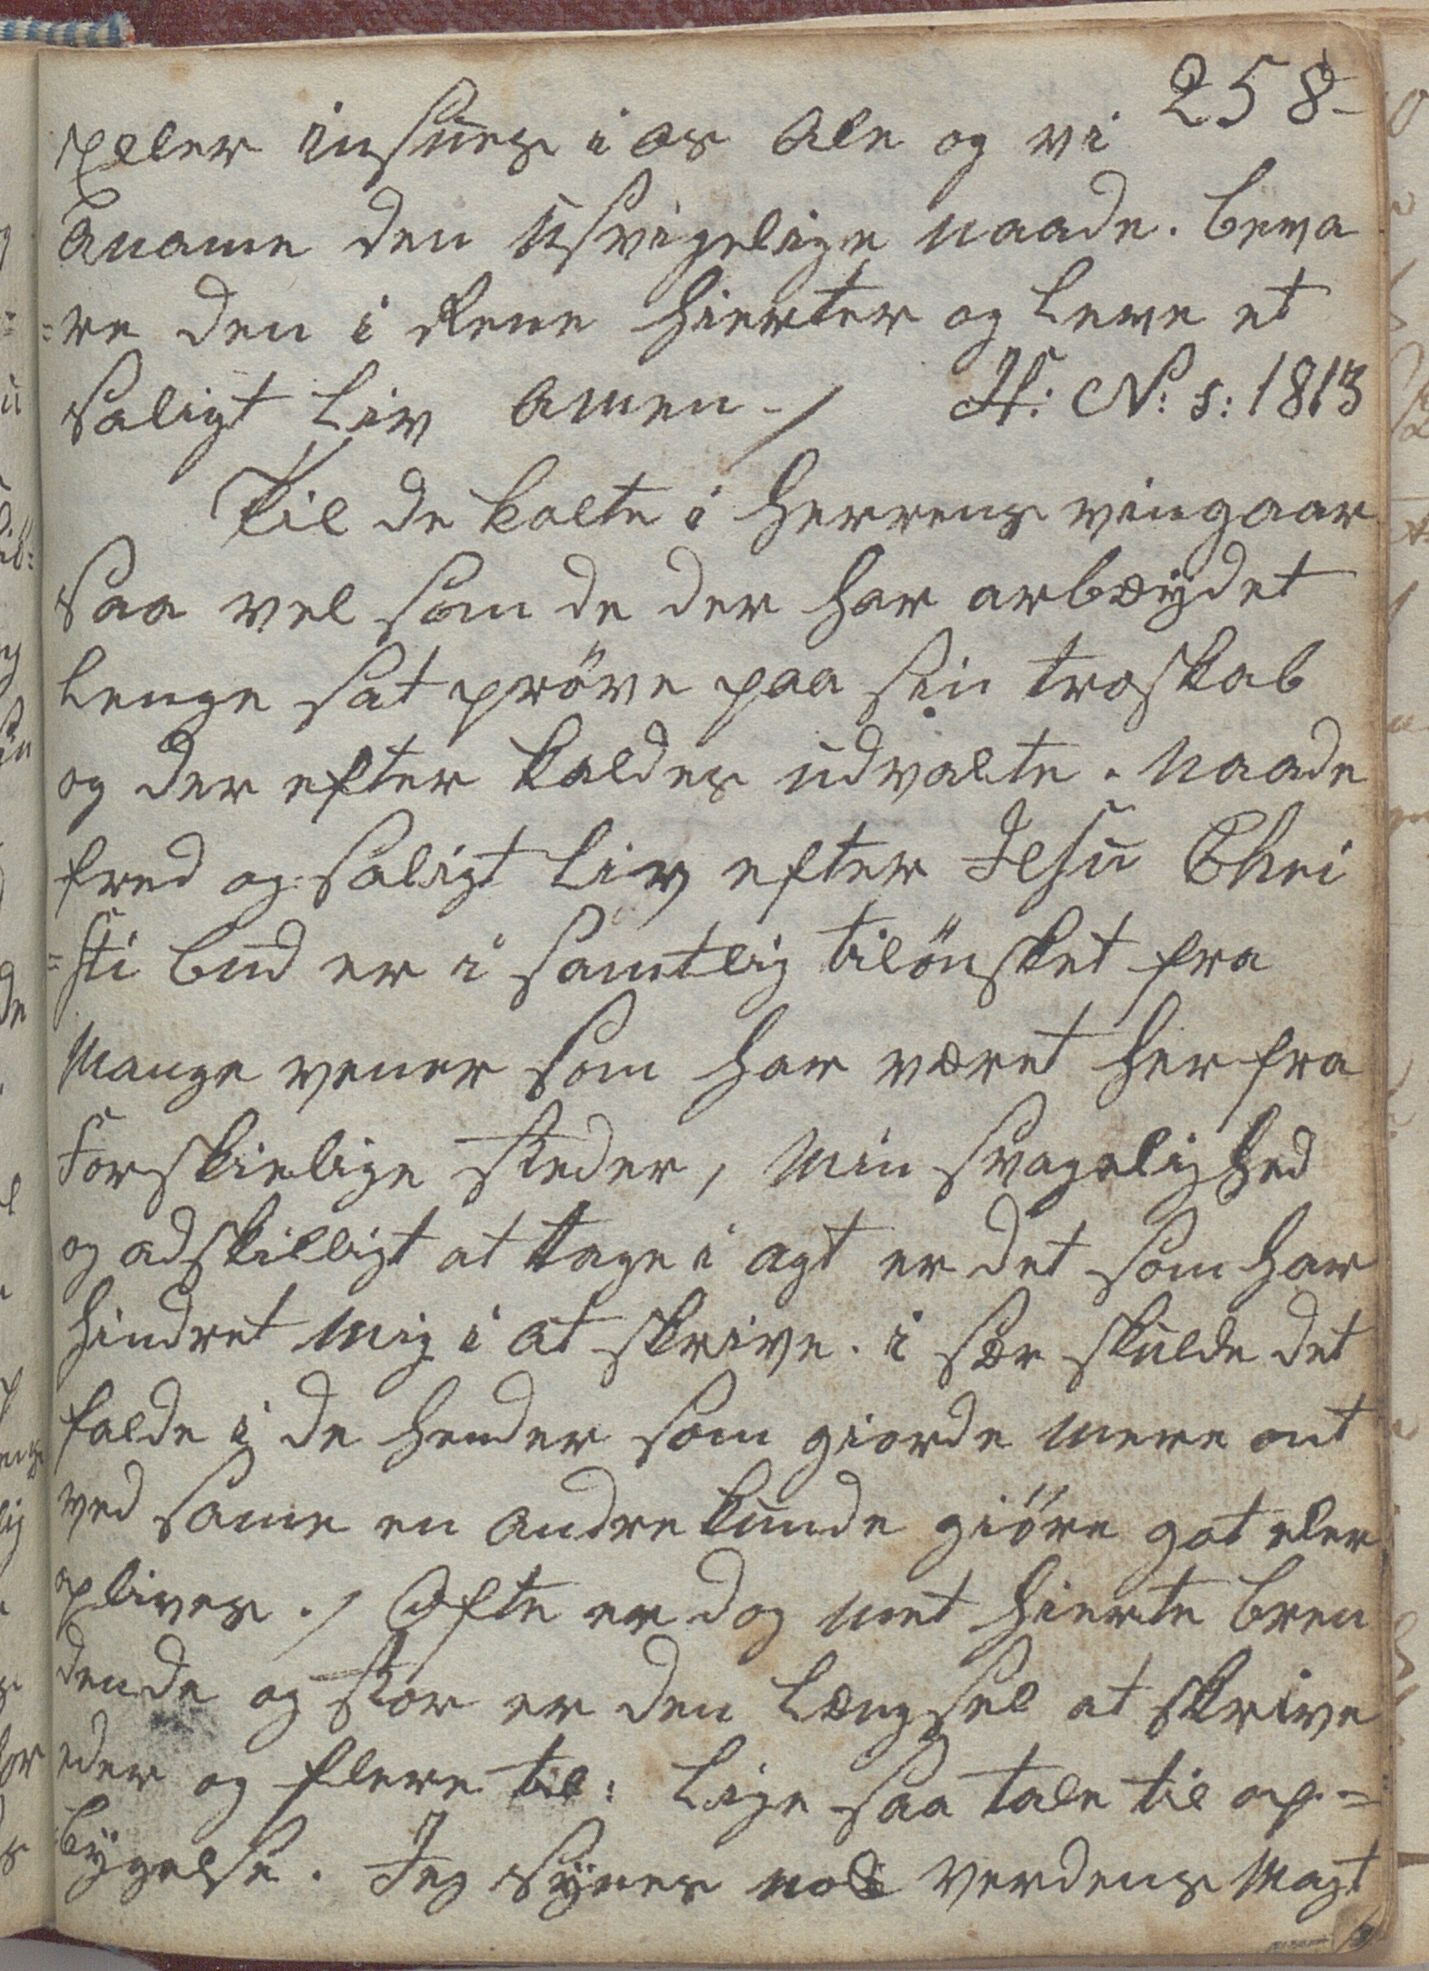 258-
speler insues i os Ale og vi
Aname den usvigelige naade. beva
=re den i Rene hierter og Leve et
saligt Liv Amen -/ H: N: s: 1813
Til de kalte i Herrens vingaar
saa vel som de der har arbæydet
Lenge sat pröve paa sin troskab
og der efter kaldes udvalte. Naade
fred og saligt Liv efter Jesu Chri
=sti bud er i samtlig tilönsket fra
Mange vener som har været her fra
Forskielige steder, Min svagelighed
og adskilligt at tage i agt er det som har
hindret Mig i at skrive. i sær skulde det
falde i de hender som giorde mere ont
ved same en andre kunde giöre got eler
oplives ./ Ofte er dog met hierte bren
dende og stor er den Længsel at skrive
eder og flere til: Lige saa tale til op-=
bygelse. Jeg synes nok verdens Magt